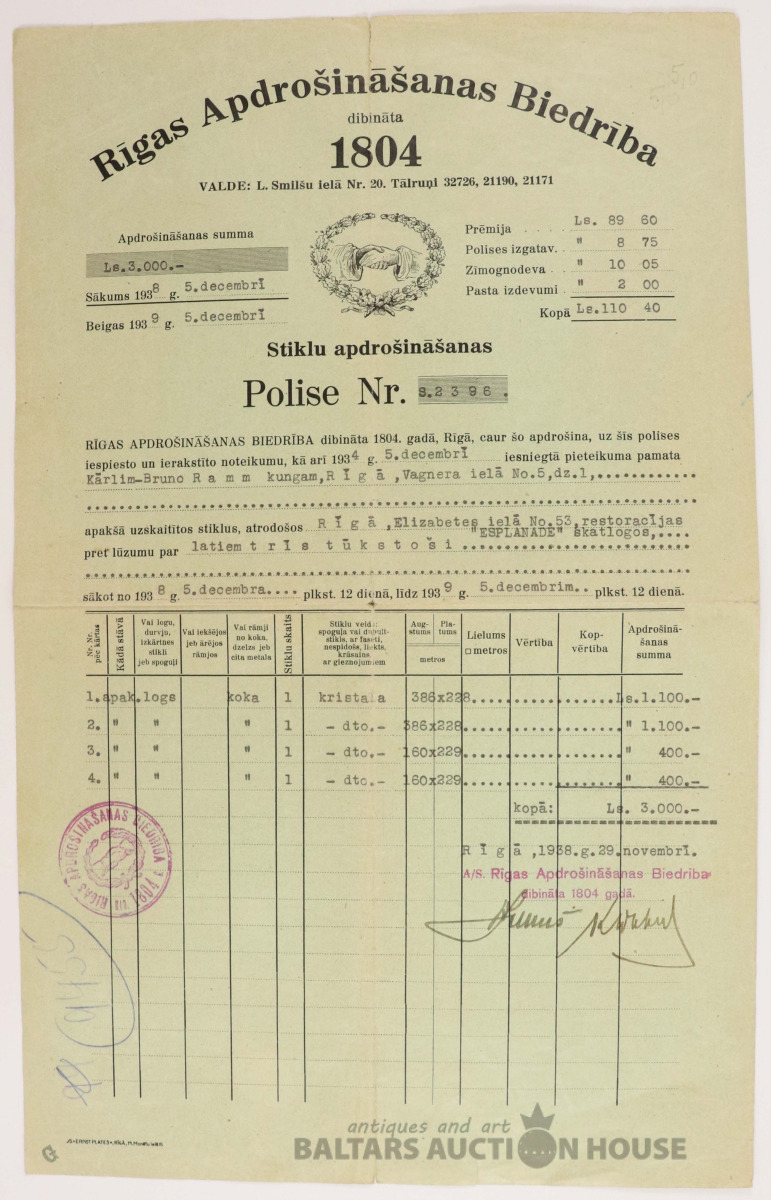 Rīgas Apdrošināšanas Biedrība
dibināta
1804
VALDE: L. Smilšu ielā Nr. 20. Tālruņi 32726, 21190, 21171
Apdrošināšanas summa
Ls.3.000.-
Sākums 1938 g. 5.decembrī
Beigas 1939 g. 5.decembrī
Prēmija . . . . Ls. 89 60
Polises izgatav. . " 8 75
Zīmognodeva . . " 10 05
Pasta izdevumi . " 2 00
Kopā Ls.110 40
Stiklu apdrošināšanas
Polise Nr. S.2396.
RĪGAS APDROŠINĀŠANAS BIEDRĪBA dibināta 1804. gadā, Rīgā, caur šo apdrošina, uz šīs polises
iespiesto un ierakstīto noteikumu, kā arī 1934 g. 5.decembrī iesniegtā pieteikuma pamata
Kārlim-Bruno Ramm kungam, Rīgā, Vagnera ielā No.5, dz.1,
apakšā uzskaitītos stiklus, atrodošos Rīgā, Elizabetes ielā No.53, restorācijas
"ESPLANADE" skatlogos,....
pret lūzumu par latiem trīs tūkstoši
sākot no 1938 g. 5.decembra.... plkst. 12 dienā, līdz 1939 g. 5.decembrim.. plkst. 12 dienā.
Nr. Nr. pēc kārtas
Kādā stāvā
Vai logu, durvju, izkārtnes stikli jeb spoguļi
Vai iekšējos jeb ārējos rāmjos
Vai rāmji no koka, dzelzs jeb cita metala
Stiklu skaits
Stiklu veids: spoguļa vai dubultstikls, ar faseti, nespidošs, liekts, krāsains ar gleznojumiem
Augstums Platums
metros
Lielums □ metros
Vērtība
Kopvērtība
Apdrošināšanas summa
1. apak. logs koka 1 kristala 386x228 Ls.1.100.-
2. " " " 1 - dto.- 386x228 " 1.100.-
3. " " " 1 - dto.- 160x229 " 400.-
4. " " " 1 - dto.- 160x229 " 400.-
kopā: Ls. 3.000.-
RĪGAS APDROŠINĀŠANAS BIEDRĪBA DIB. 1804
Rīgā, 1938.g.29.novembrī.
A/S. Rīgas Apdrošināšanas Biedrība
dibināta 1804 gadā.
9455
antiques and art
BALTARS AUCTION HOUSE